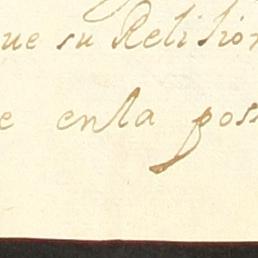 ue su Relision
e enla poss